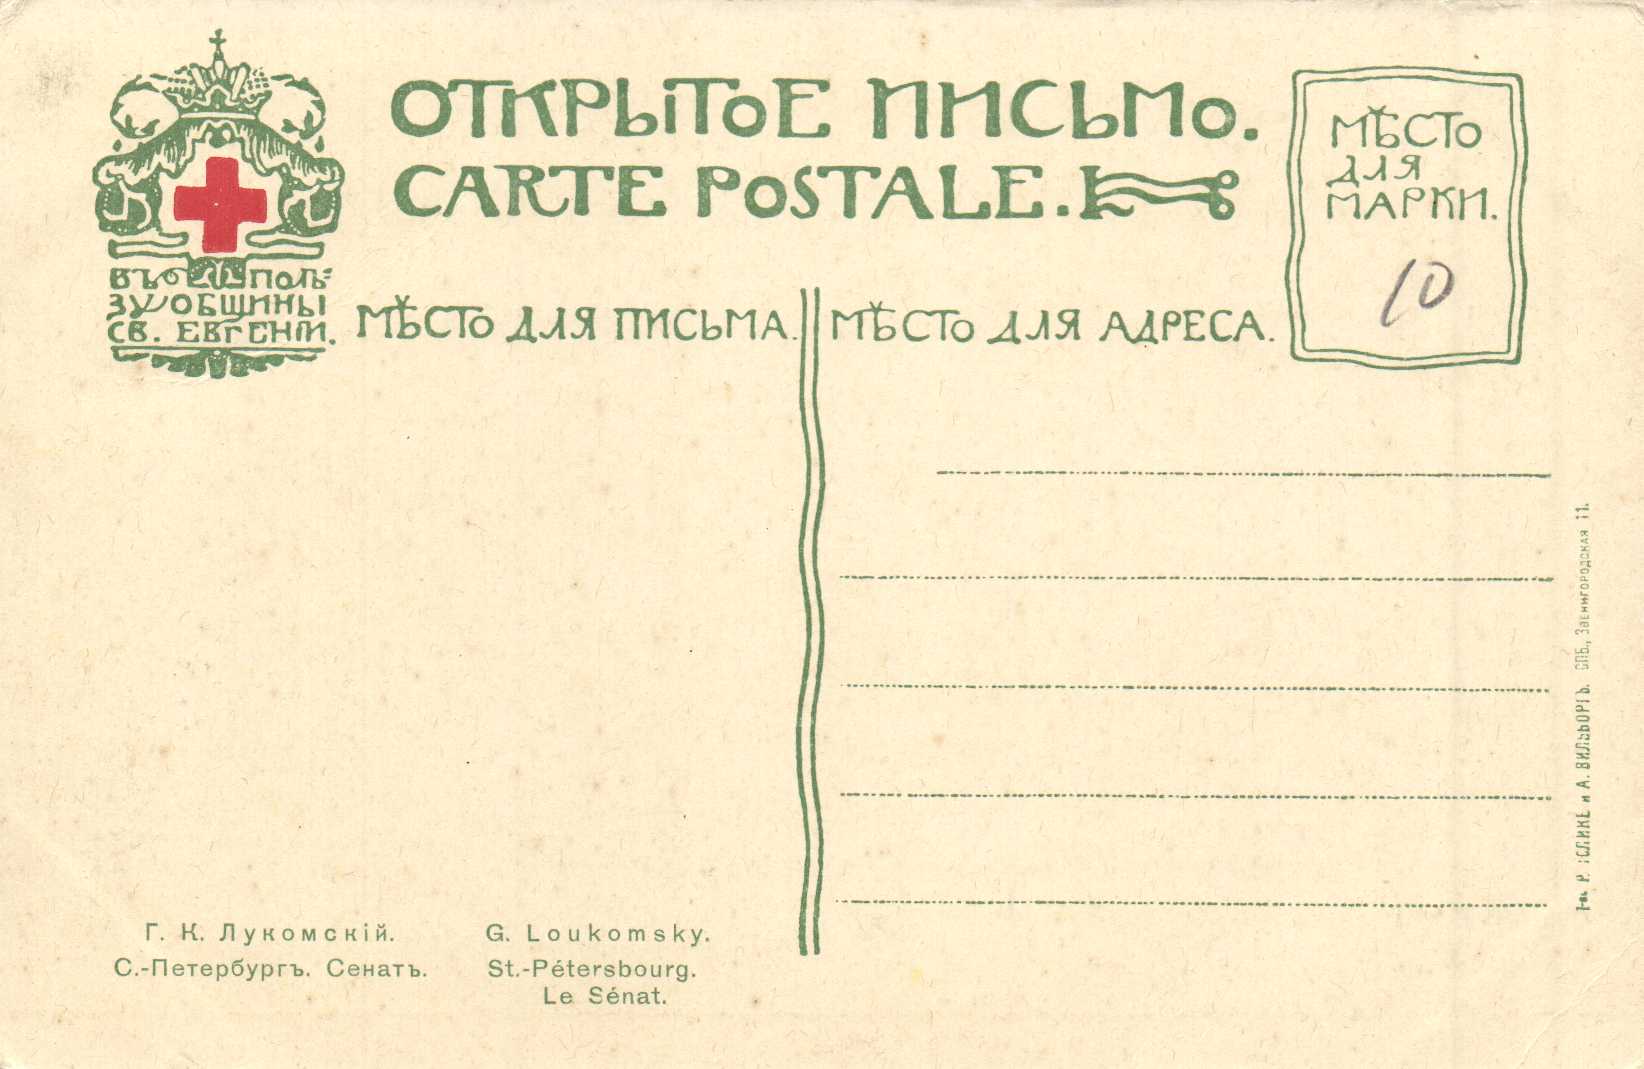 ОТКРЫТОЕ ПИСЬМО.
CARTE POSTALE.
МѢСТО
ДЛЯ
МАРКИ.
10
ВЪ ПОЛЬ-
ЗУ ОБЩИНЫ
СВ. ЕВГЕНІИ.
МѢСТО ДЛЯ ПИСЬМА.
МѢСТО ДЛЯ АДРЕСА.
Т-во Р. ГОЛИКЕ и А. ВИЛЬБОРГЪ. СПБ., Звенигородская 11.
Г. К. Лукомскій.
С.-Петербургъ. Сенатъ.
G. Loukomsky.
St.-Pétersbourg.
Le Sénat.